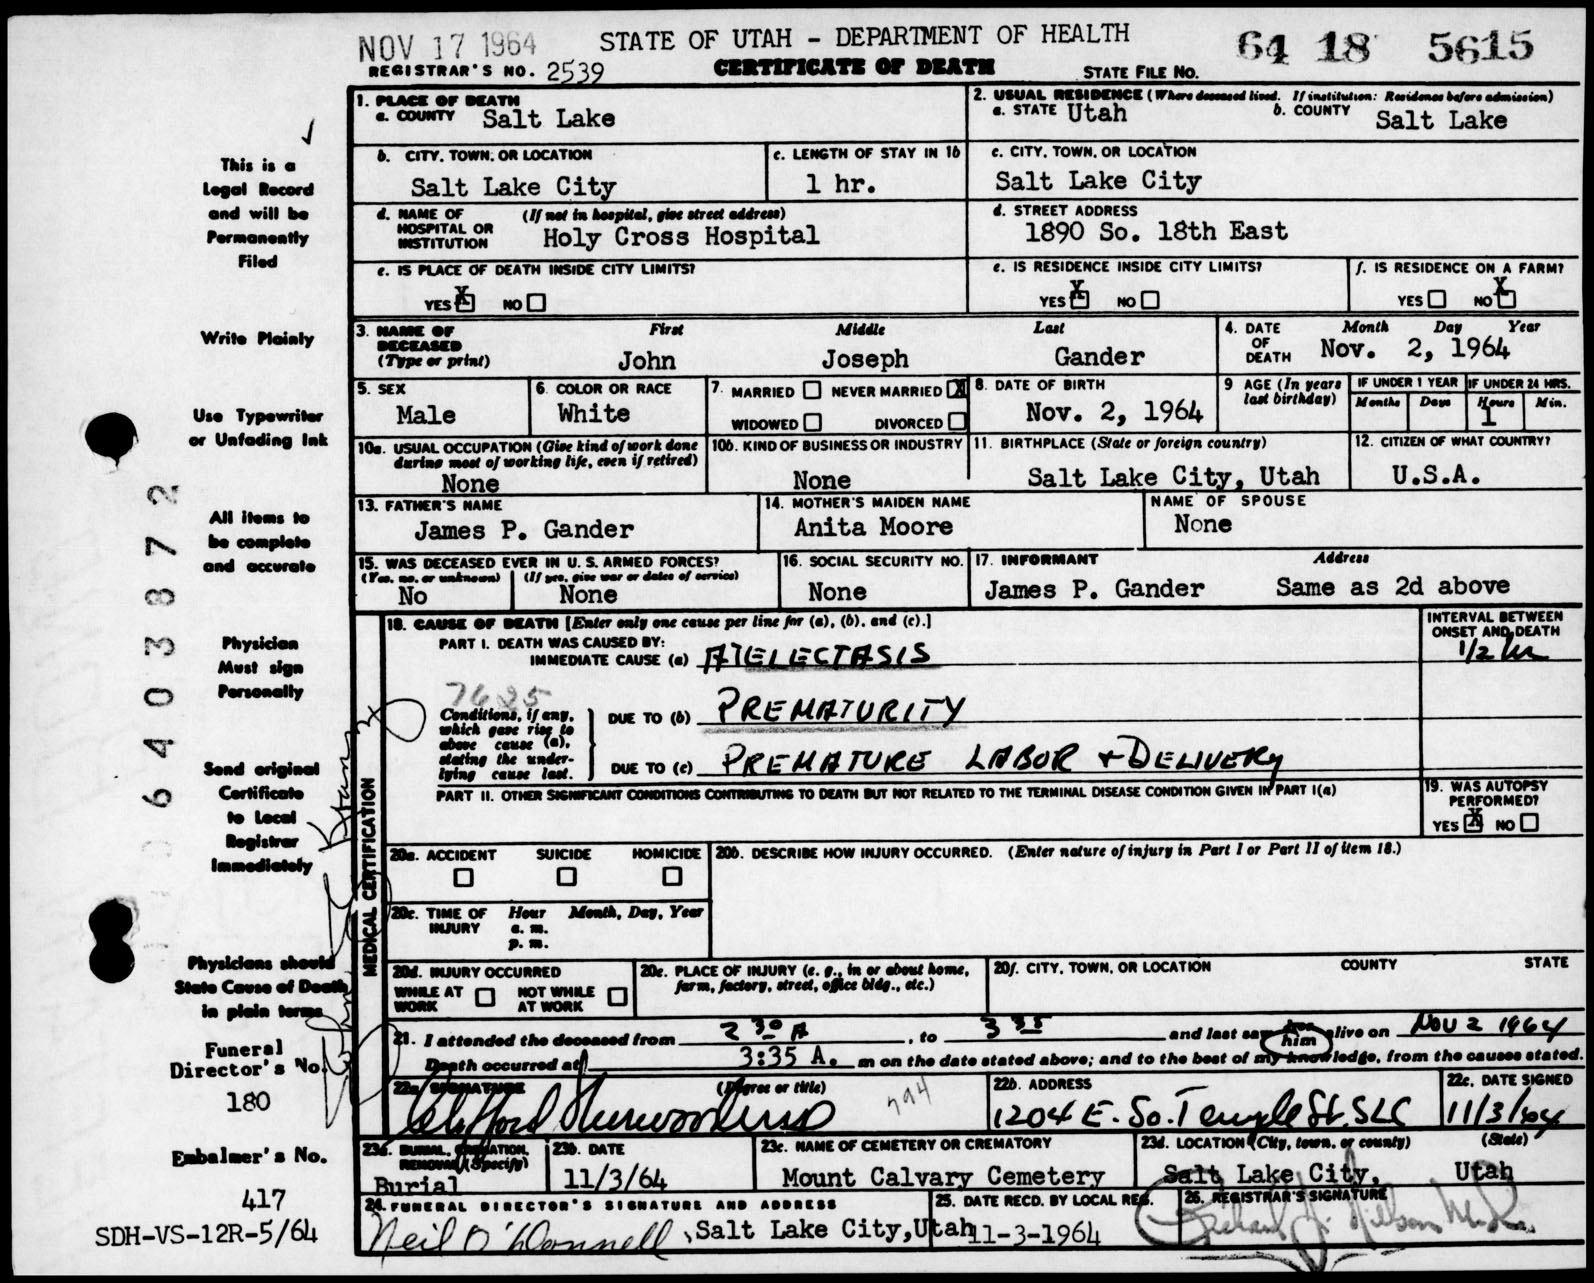 NOV 17 1964 STATE OF UTAH - DEPARTMENT OF HEALTH 64 18 5615
REGISTRAR'S NO. 2539 CERTIFICATE OF DEATH STATE FILE NO.
1. PLACE OF DEATH
a. COUNTY Salt Lake
2. USUAL RESIDENCE (Where deceased lived. If institution: Residence before admission)
a. STATE Utah b. COUNTY Salt Lake
b. CITY, TOWN, OR LOCATION
Salt Lake City
c. LENGTH OF STAY IN 1b
1 hr.
c. CITY, TOWN, OR LOCATION
Salt Lake City
d. NAME OF HOSPITAL OR INSTITUTION (If not in hospital, give street address)
Holy Cross Hospital
d. STREET ADDRESS
1890 So. 18th East
e. IS PLACE OF DEATH INSIDE CITY LIMITS?
YES X NO
e. IS RESIDENCE INSIDE CITY LIMITS?
YES X NO
f. IS RESIDENCE ON A FARM?
YES NO X
3. NAME OF DECEASED (Type or print)
First Middle Last
John Joseph Gander
4. DATE OF DEATH Month Day Year
Nov. 2, 1964
5. SEX
Male
6. COLOR OR RACE
White
7. MARRIED NEVER MARRIED X
WIDOWED DIVORCED
8. DATE OF BIRTH
Nov. 2, 1964
9 AGE (In years last birthday)
IF UNDER 1 YEAR IF UNDER 24 HRS.
Months Days Hours Min.
1
10a. USUAL OCCUPATION (Give kind of work done during most of working life, even if retired)
None
10b. KIND OF BUSINESS OR INDUSTRY
None
11. BIRTHPLACE (State or foreign country)
Salt Lake City, Utah
12. CITIZEN OF WHAT COUNTRY?
U.S.A.
13. FATHER'S NAME
James P. Gander
14. MOTHER'S MAIDEN NAME
Anita Moore
NAME OF SPOUSE
None
15. WAS DECEASED EVER IN U. S. ARMED FORCES?
(Yes, no, or unknown) (If yes, give war or dates of service)
No None
16. SOCIAL SECURITY NO.
None
17. INFORMANT Address
James P. Gander Same as 2d above
MEDICAL CERTIFICATION
18. CAUSE OF DEATH [Enter only one cause per line for (a), (b), and (c).]
INTERVAL BETWEEN ONSET AND DEATH
PART I. DEATH WAS CAUSED BY:
IMMEDIATE CAUSE (a) ATELECTASIS 1/2 hr
7625
Conditions, if any, which gave rise to above cause (a), stating the underlying cause last.
DUE TO (b) PREMATURITY
DUE TO (c) PREMATURE LABOR + DELIVERY
PART II. OTHER SIGNIFICANT CONDITIONS CONTRIBUTING TO DEATH BUT NOT RELATED TO THE TERMINAL DISEASE CONDITION GIVEN IN PART I(a)
19. WAS AUTOPSY PERFORMED?
YES X NO
20a. ACCIDENT SUICIDE HOMICIDE
20b. DESCRIBE HOW INJURY OCCURRED. (Enter nature of injury in Part I or Part II of item 18.)
20c. TIME OF INJURY Hour Month, Day, Year
a. m.
p. m.
20d. INJURY OCCURRED
WHILE AT WORK NOT WHILE AT WORK
20e. PLACE OF INJURY (e. g., in or about home, farm, factory, street, office bldg., etc.)
20f. CITY, TOWN, OR LOCATION COUNTY STATE
21. I attended the deceased from 2 30 A, to 3 35 and last saw him alive on NOV 2 1964
Death occurred at 3:35 A. m on the date stated above; and to the best of my knowledge, from the causes stated.
22a SIGNATURE (Degree or title)
Clifford
794
22b. ADDRESS
1204 E. So. Temple St. SLC
22c. DATE SIGNED
11/3/64
23a. BURIAL, CREMATION, REMOVAL (Specify)
Burial
23b. DATE
11/3/64
23c. NAME OF CEMETERY OR CREMATORY
Mount Calvary Cemetery
23d. LOCATION (City, town, or county) (State)
Salt Lake City, Utah
24. FUNERAL DIRECTOR'S SIGNATURE AND ADDRESS
Neil O'Donnell, Salt Lake City, Utah
25. DATE RECD. BY LOCAL REG.
11-3-1964
26. REGISTRAR'S SIGNATURE
This is a
Legal Record
and will be
Permanently
Filed
Write Plainly
Use Typewriter
or Unfading Ink
All items to
be complete
and accurate
Physician
Must sign
Personally
Send original
Certificate
to Local
Registrar
Immediately
Physicians should
State Cause of Death
in plain terms
Funeral
Director's No.
180
Embalmer's No.
417
SDH-VS-12R-5/64
6403872